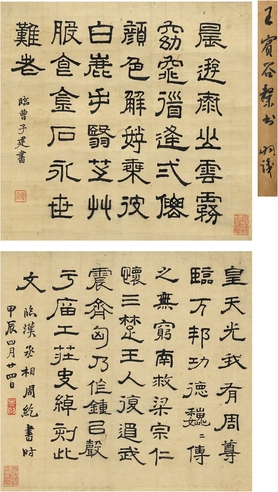 王賓谷隸書
晨遊泰山雲霧
窈窕逢弍
顏色好乘彼
白鹿手翳芝艸
服食金石永世
難老
臨曹子建書
皇天光我有周尊
臨万邦功德巍〻傳
之無窮南救梁宗仁
懷三楚王人復過武
震齊匈乃作鍾呂聲
亏庙工莊史綽刻此
文
臨漢丞相周書時
甲辰四月廿四日